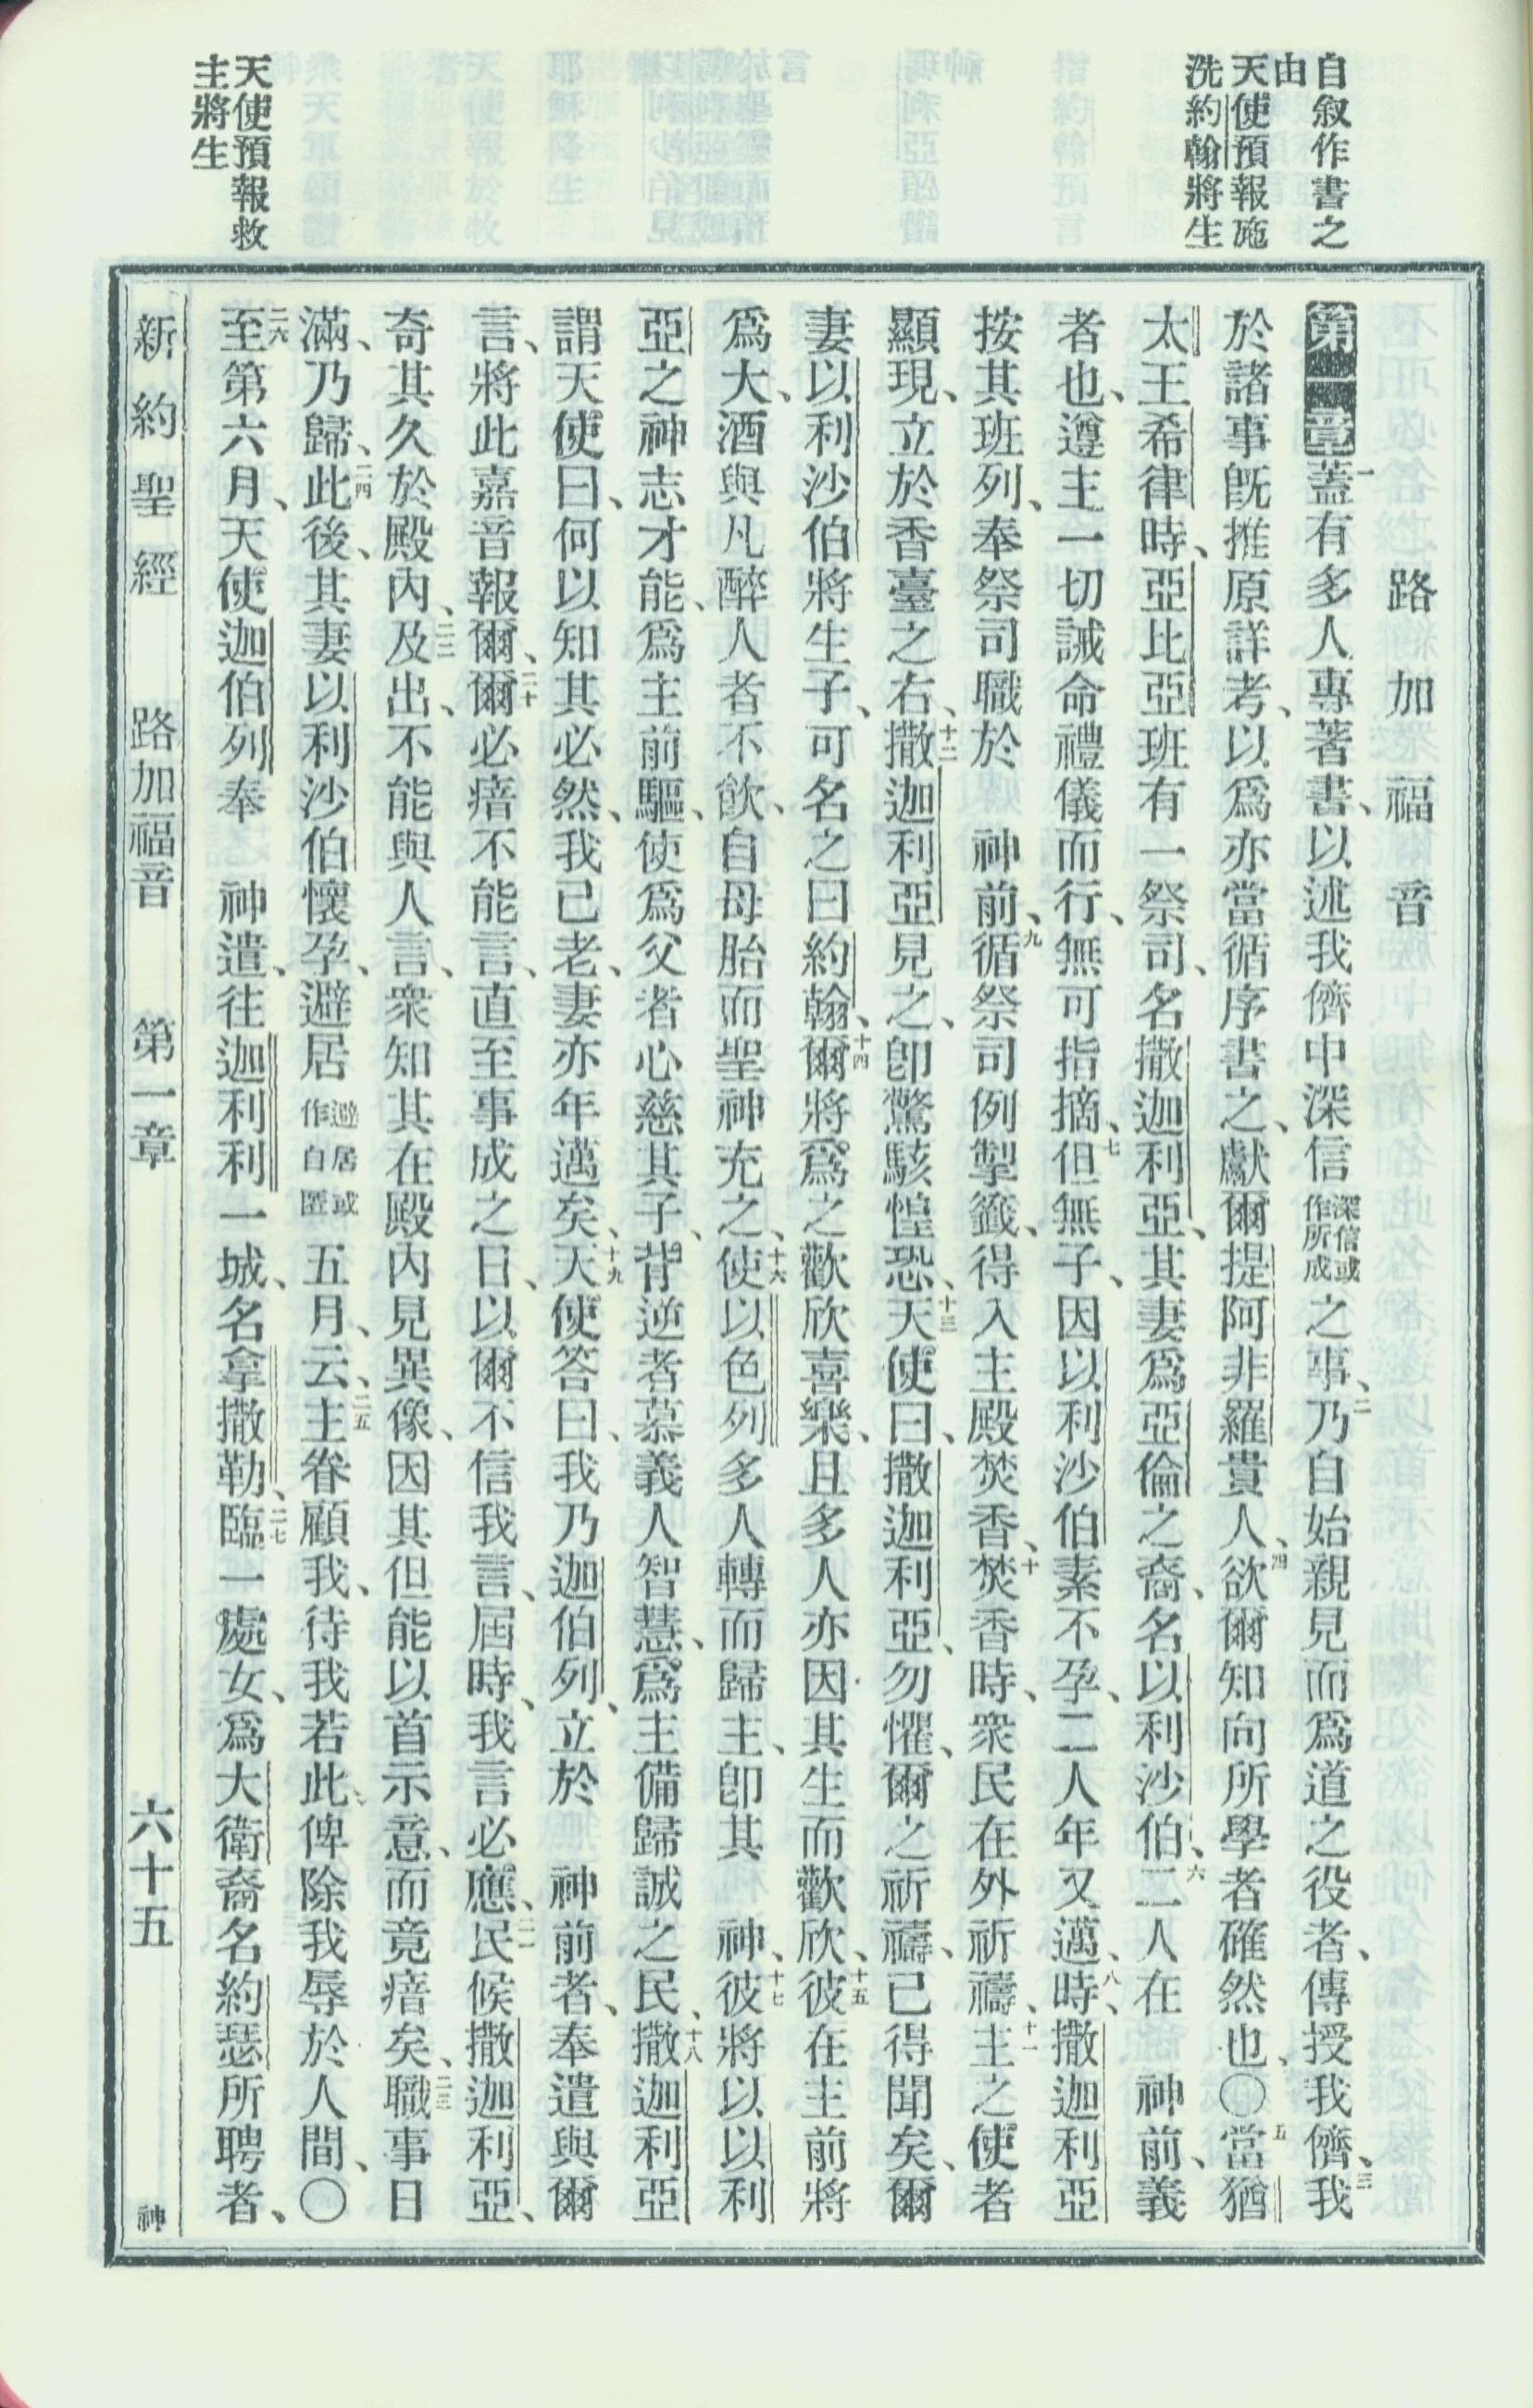 自叙作書之
由
天使預報施
洗約翰將生
天使預報救
主將生
路加福音
第一章一蓋有多人專著書、以述我儕中深信深信或作所成之事、二乃自始親見而爲道之役者、傳授我儕、三我
於諸事既推原詳考、以爲亦當循序書之、獻爾提阿非羅貴人、四欲爾知向所學者確然也、〇五當猶
太王希律時、亞比亞班有一祭司、名撒迦利亞、其妻爲亞倫之裔、名以利沙伯、六二人在　神前、義
者也、遵主一切誡命禮儀而行、無可指摘、七但無子、因以利沙伯素不孕、二人年又邁、八時、撒迦利亞
按其班列、奉祭司職於　神前、九循祭司例掣籤、得入主殿焚香、十焚香時、衆民在外祈禱、十一主之使者
顯現、立於香臺之右、十二撒迦利亞見之、卽驚駭惶恐、十三天使曰、撒迦利亞、勿懼、爾之祈禱、已得聞矣、爾
妻以利沙伯將生子、可名之曰約翰、十四爾將爲之歡欣喜樂、且多人亦因其生而歡欣、十五彼在主前將
爲大、酒與凡醉人者不飲、自母胎而聖神充之、十六使以色列多人轉而歸主、卽其　神、十七彼將以以利
亞之神志才能、爲主前驅、使爲父者心慈其子、背逆者慕義人智慧、爲主備歸誠之民、十八撒迦利亞
謂天使曰、何以知其必然、我已老、妻亦年邁矣、十九天使答曰、我乃迦伯列、立於　神前者、奉遣與爾
言、將此嘉音報爾、二十爾必瘖不能言、直至事成之日、以爾不信我言、屆時、我言必應、二一民候撒迦利亞、
奇其久於殿內、二二及出、不能與人言、衆知其在殿內見異像、因其但能以首示意、而竟瘖矣、二三職事日
滿、乃歸、二四此後、其妻以利沙伯懷孕、避居避居或作自匿五月、云、二五主眷顧我、待我若此、俾除我辱於人間、〇
二六至第六月、天使迦伯列奉　神遣、往迦利利一城、名拿撒勒、二七臨一處女、爲大衛裔名約瑟所聘者、
新約聖經　路加福音　第一章　六十五　神